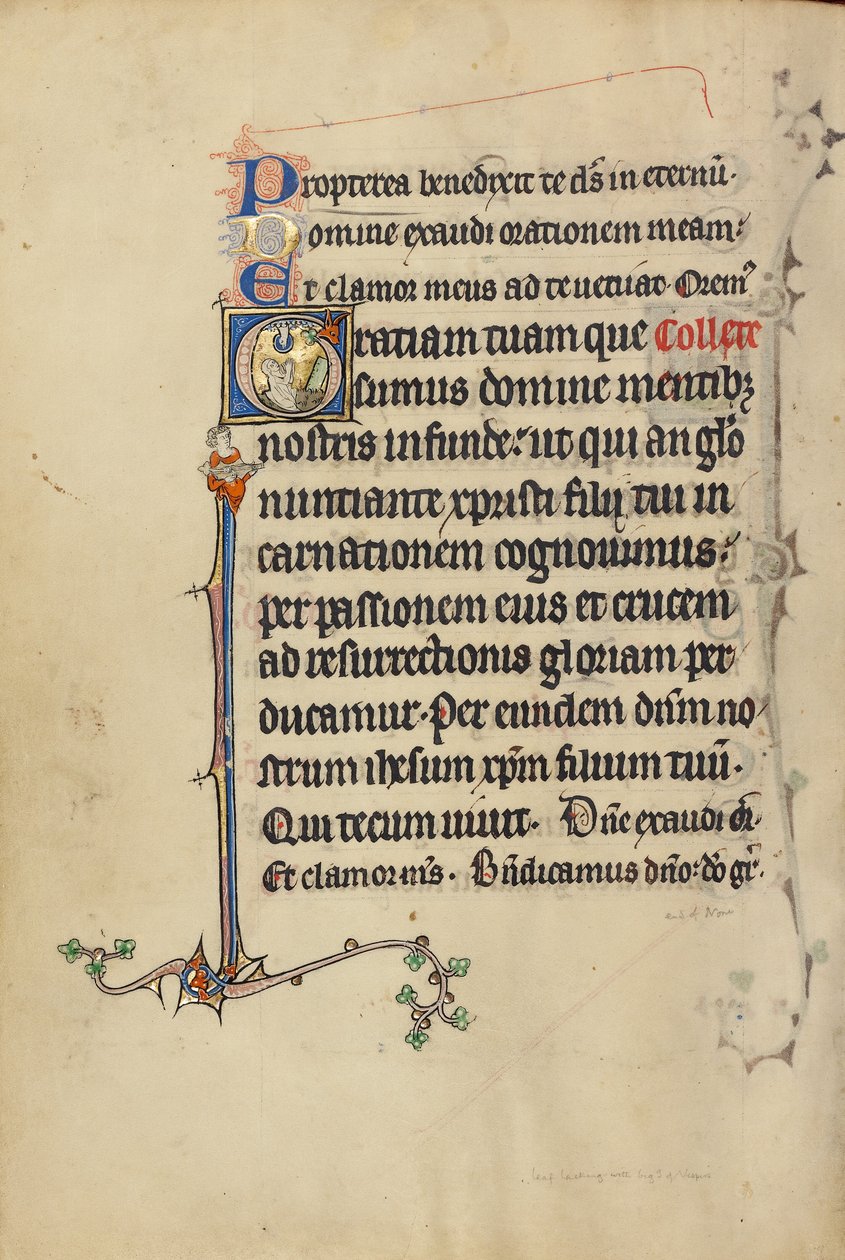 Propterea benedixit te d̅s in eternu̅.
Domine exaudi orationem meam:
Et clamor meus ad te ueniat. Orem⁹
Gratiam tuam que Collecte
sumus domine mentibꝫ
nostris infunde: ut qui anglo
nuntiante xpristi filij tui in
carnationem cognouimus:
per passionem eius et crucem
ad resurrectionis gloriam per
ducamur. Per eundem dn̅m no
strum ihesum xp̅m filium tuu̅.
Qui tecum uiuit. Dn̅e exaudi or̅.
Et clamor m̅s. Bn̅dicamus dn̅o: do̅ gr̅.
end of None
leaf lacking with beg of Vespers